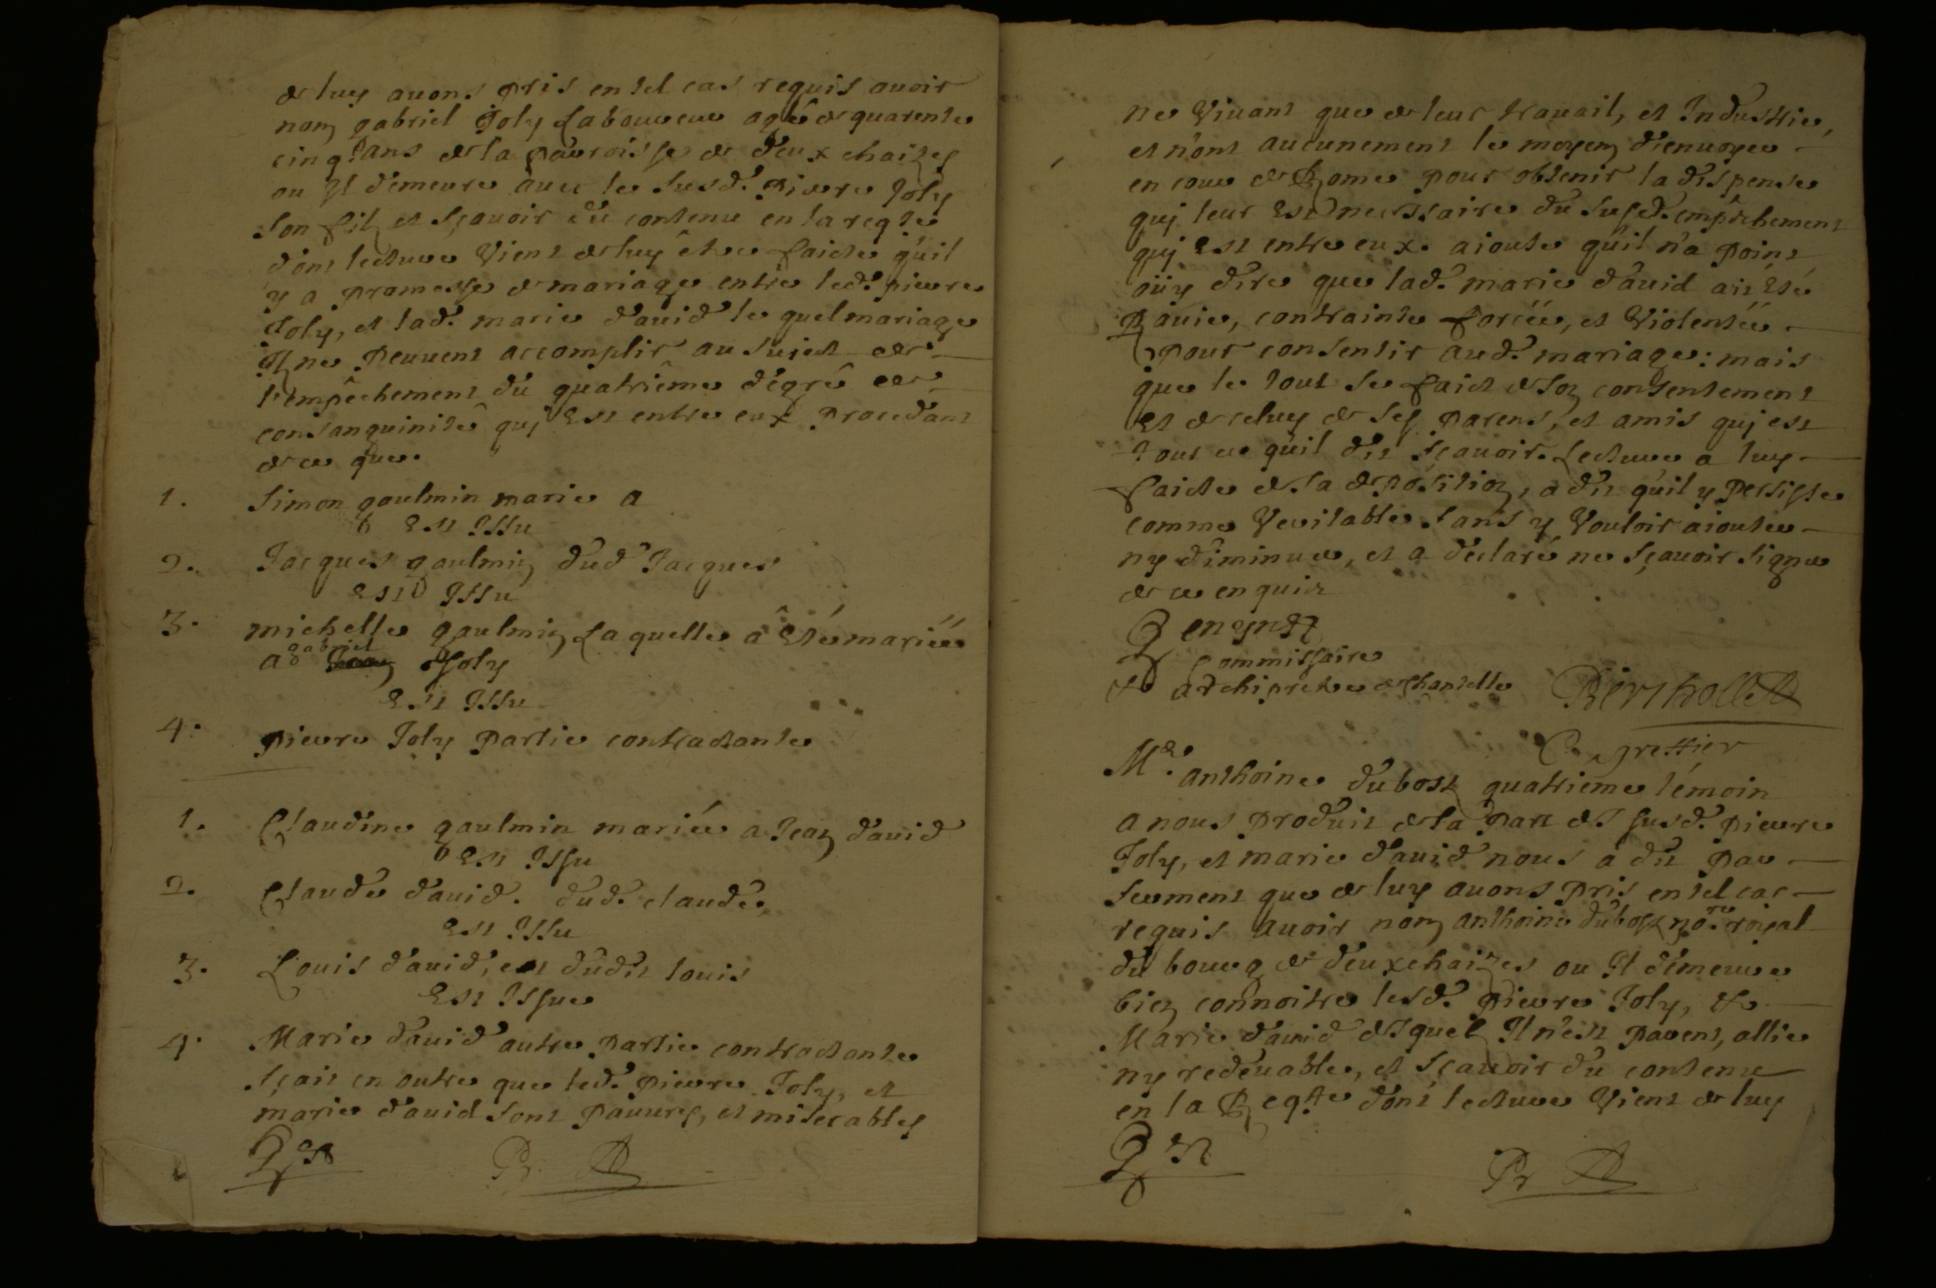 de luy avons pris en tel cas requis avoir
nom gabriel Joly Laboureur agé de quarente
cinq ans de la parroisse de deux chaizes
ou Il demeure avec le susd. pierre Joly
son fils et sçavoir du contenu en la reqte
dont lecture vient de luy être faicte qu'il
y a promesse de mariage entre led. pierre
Joly, et lad. marie david le quel mariage
Ilz ne peuvent accomplir au sujet de
l'empêchement du quatriême degré de
consanguinité qui Est entre eux procedant
de ce que.
1. Simon gaulmin marié a
Est Issu
2. Jacques gaulmin dud Jacques
Est Issu
3. michelle gaulmin Laquelle a Eté mariée
a gabriel Joly
Est Issu
4. pierre Joly partie contractante
1. Claudine gaulmin mariée a Jean david
Est Issu
2. Claude david. dud. claude
Est Issu
3. Louis david, et dudit louis
Est Issue
4. Marie david autre partie contractante
sçait en outre que led. pierre Joly, et
marie david sont pauvres, et miserables
ne vivant que de leur travail, et Industrie,
et n'ont aucunement le moyen d'envoyer
en cour de Rome pour obtenir la dispense
qui leur Est necessaire du susd. empêchement
qui Est entre eux. aioute qu'il n'a point
oüy dire que lad. marie david ait Eté
Ravie, contrainte forcée, et violentée
pour consentir aud. mariage: mais
que le tout se faict de son consentement
et de celuy de ses parens, et amis qui est
tout ce qu'il dit sçavoir. Lecture a luy
faicte de sa deposition, a dit qu'il y persiste
comme veritable sans y vouloir aiouter
ny diminuer, et a declaré ne sçavoir signer
de ce enquis
Commissaire
et archipretre de chantelle Bertholet
greffier
Me. anthoine dubost quatrieme témoin
a nous produit de la part des susd. pierre
Joly, et marie david nous a dit par
serment que de luy avons pris en tel cas
requis avoir nom anthoine dubost nore. roial
du bourg de deux chaizes ou Il demeure
bien connoitre lesd. pierre Joly, et
Marie david desquels Il n'est parent, allié
ny redevable, et sçavoir du contenu
en la Reqte dont lecture vient de luy